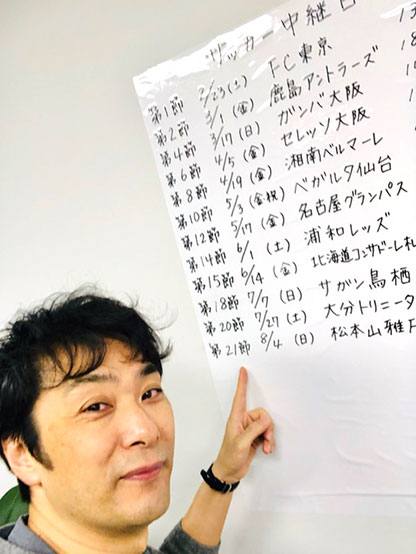 サッカー中継日
第1節 2/23(土) FC東京 13
第2節 3/1(金) 鹿島アントラーズ 18
第4節 3/17(日) ガンバ大阪
第6節 4/5(金) セレッソ大阪
第8節 4/19(金) 湘南ベルマーレ
第10節 5/3(金・祝) ベガルタ仙台
第12節 5/17(金) 名古屋グランパス
第14節 6/1(土) 浦和レッズ
第15節 6/14(金) 北海道コンサドーレ札
第18節 7/7(日) サガン鳥栖
第20節 7/27(土) 大分トリニータ
第21節 8/4(日) 松本山雅F